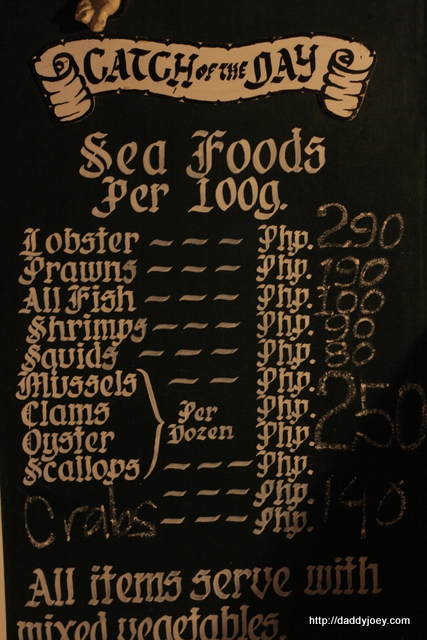 CATCH OF THE DAY
Sea Foods
Per 100g.
Lobster - - - Php. 290
Prawns - - - Php. 190
All Fish - - - Php. 100
Shrimps - - - Php. 90
Squids - - - Php. 80
Mussels - - - Php.
Clams Php. 250
Oyster Per Dozen Php.
Scallops - - - Php.
- - - Php.
Crabs - - - Php. 140
All items serve with
mixed vegetables
http://daddyjoey.com